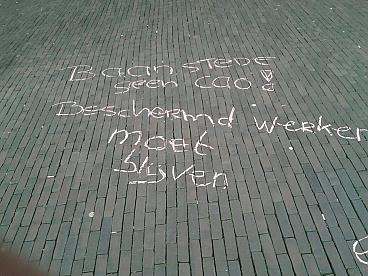 Baanstede
geen cao!
Beschermd werken
moet
blijven